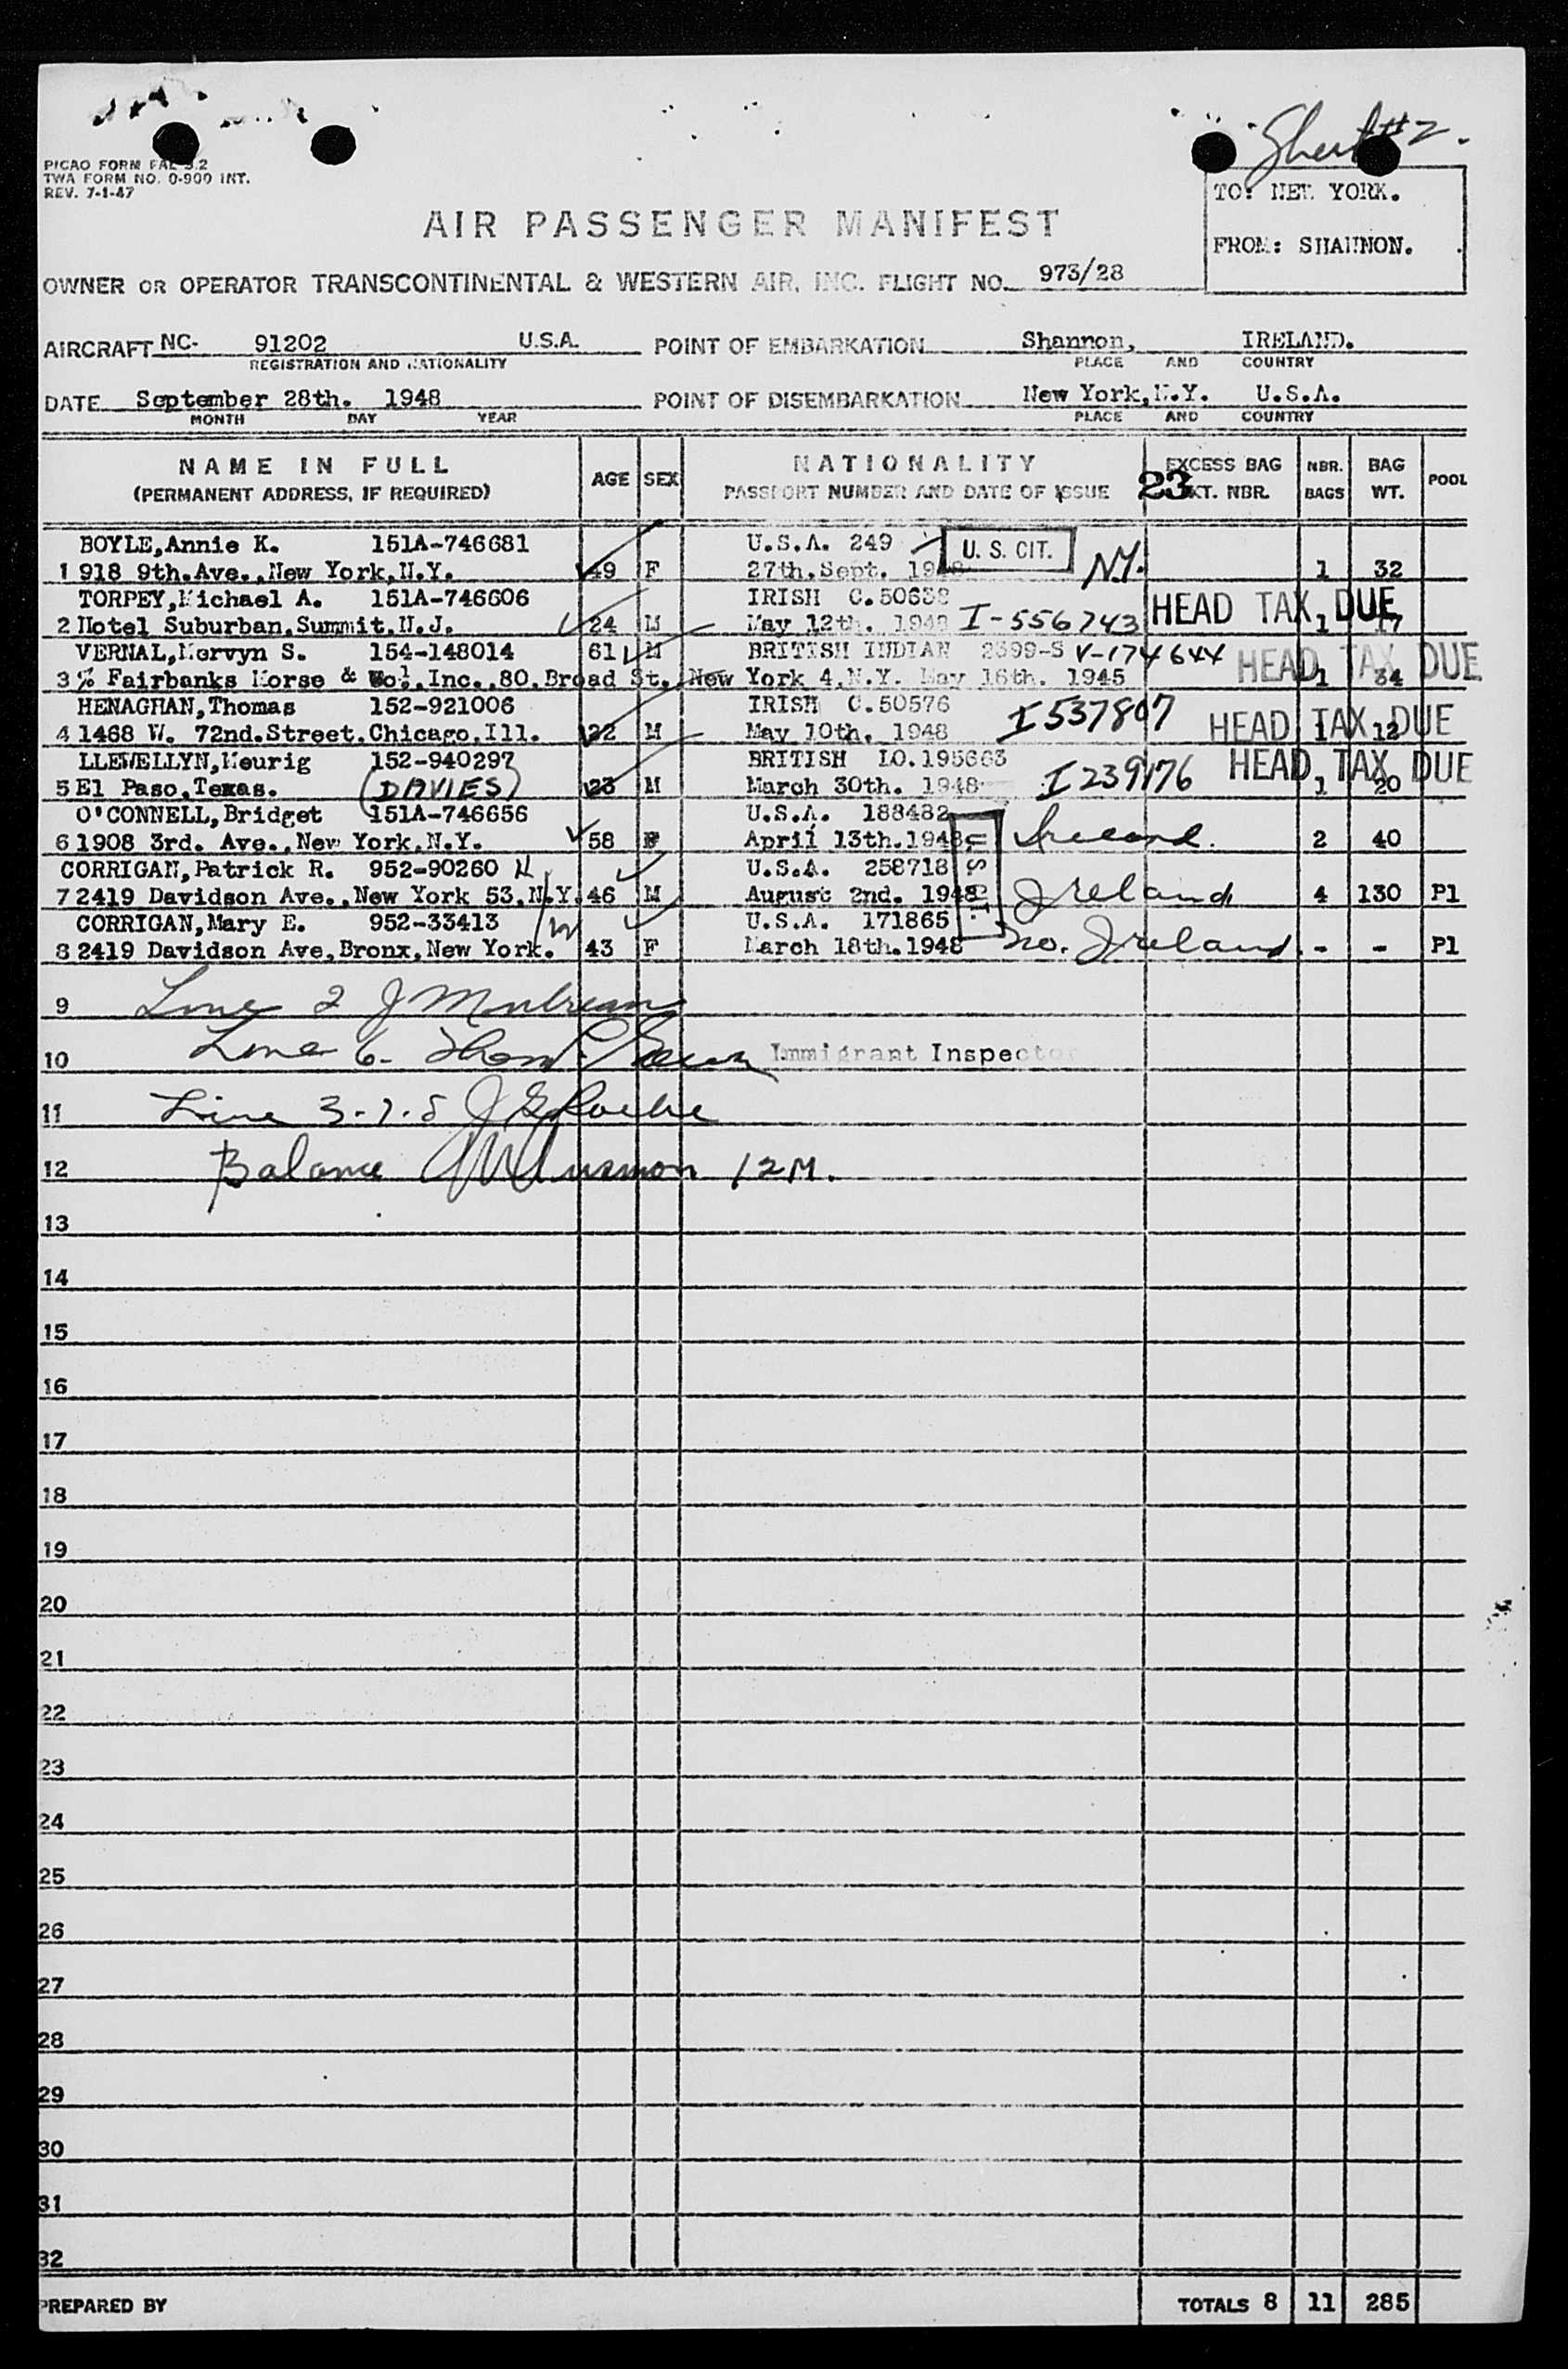 Sheet #2.
PICAO FORM FAL 3.2
TWA FORM NO. 0-900 INT.
REV. 7-1-47
TO: NEW YORK.
FROM: SHANNON.
AIR PASSENGER MANIFEST
OWNER OR OPERATOR TRANSCONTINENTAL & WESTERN AIR, INC. FLIGHT NO. 973/28
AIRCRAFT NC- 91202 U.S.A. POINT OF EMBARKATION Shannon, IRELAND.
REGISTRATION AND NATIONALITY PLACE AND COUNTRY
DATE September 28th. 1948 POINT OF DISEMBARKATION New York,N.Y. U.S.A.
MONTH DAY YEAR PLACE AND COUNTRY
NAME IN FULL AGE SEX NATIONALITY EXCESS BAG NBR. BAG POOL
(PERMANENT ADDRESS, IF REQUIRED) PASSPORT NUMBER AND DATE OF ISSUE 23 KT. NBR. BAGS WT.
BOYLE,Annie K. 151A-746681 U.S.A. 249 U. S. CIT.
1 918 9th.Ave.,New York,N.Y. 49 F 27th.Sept. 1948 N.Y. 1 32
TORPEY,Michael A. 151A-746606 IRISH C.50638 HEAD TAX DUE
2 Hotel Suburban.Summit.N.J. 24 M May 12th. 1948 I-556743 1 17
VERNAL,Mervyn S. 154-148014 61 M BRITISH INDIAN 2399-S V-174644 HEAD TAX DUE
3 % Fairbanks Morse & Co.,Inc.,80.Broad St.,New York 4.N.Y. May 16th. 1945 1 34
HENAGHAN,Thomas 152-921006 IRISH C.50576 I537807 HEAD TAX DUE
4 1468 W. 72nd.Street.Chicago.Ill. 22 M May 10th. 1948 1 12
LLEWELLYN,Meurig 152-940297 BRITISH LO.195663 HEAD TAX DUE
5 El Paso,Texas. (DAVIES) 23 M March 30th. 1948 I239176 1 20
O'CONNELL,Bridget 151A-746656 U.S.A. 188482 U. S. CIT.
6 1908 3rd. Ave.,New York.N.Y. 58 F April 13th.1948 Ireland. 2 40
CORRIGAN,Patrick R. 952-90260 H U.S.A. 258718
7 2419 Davidson Ave.,New York 53.N.Y. 46 M August 2nd. 1948 Ireland 4 130 P1
CORRIGAN,Mary E. 952-33413 W U.S.A. 171865
8 2419 Davidson Ave,Bronx,New York. 43 F March 18th.1948 No. Ireland. - - P1
9 Line 2 J
10 Line 6- Immigrant Inspector
11 Line 3-7-8 J
12 Balance 12M.
13
14
15
16
17
18
19
20
21
22
23
24
25
26
27
28
29
30
31
32
PREPARED BY TOTALS 8 11 285